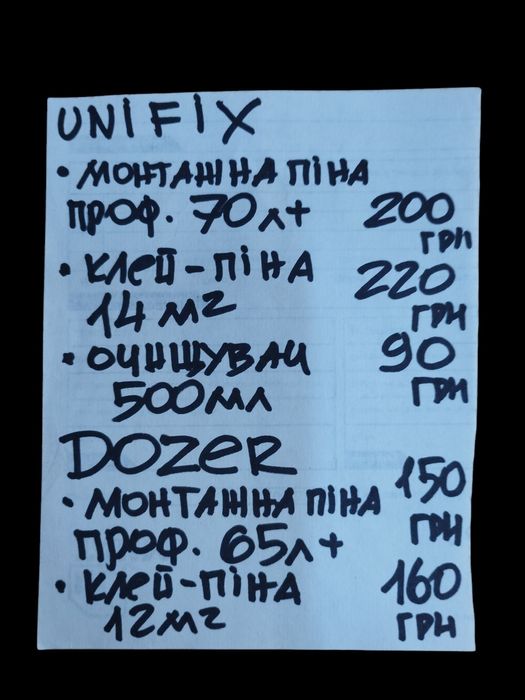 UNIFIX
• МОНТАЖНА ПІНА
ПРОФ. 70 Л+ 200 ГРН
• КЛЕЙ-ПІНА 220 ГРН
14 М2
• ОЧИЩУВАЧ 90 ГРН
500МЛ
DOZER
• МОНТАЖНА ПІНА 150 ГРН
ПРОФ. 65Л+
• КЛЕЙ-ПІНА 160 ГРН
12М2